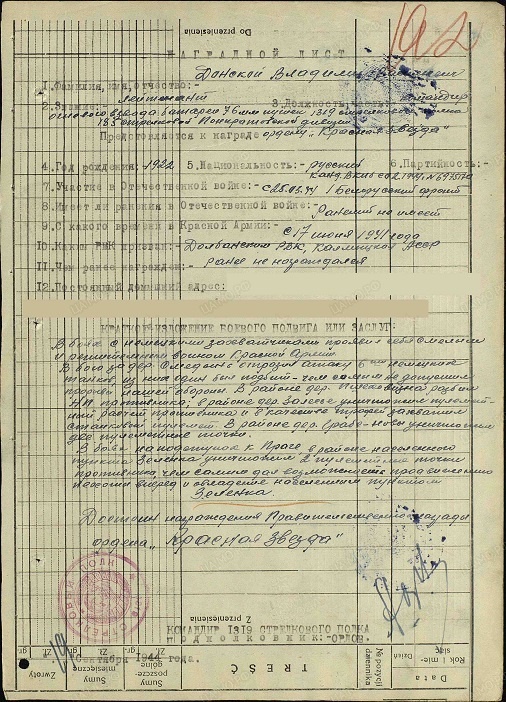 Do przeniesienia
НАГРАДНОЙ ЛИСТ
1.Фамилия, имя, отчество:- Донской Владимир
2.Звание:- Лейтенант 3.Должность, часть: командир
огневого взвода батареи 76 мм пушек 1319 стрелкового полка
185 стрелковой Панкратовской дивизии
Представляется к награде ордену „Красная звезда"
4.Год рождения:- 1922 5.Национальность:- русский 6.Партийность:-
канд. ВКП(б) с
7.Участие в Отечественной войне:- с 25.03.44 1 Белорусский фронт
8.Имеет ли ранения в Отечественной войне:- Ранений не имеет
9.С какого времени в Красной Армии:- с 17 июня 1941 года
10.Каким РВК призван:- Долбанским РВК, Калмыцкой АССР
11.Чем ранее награжден:- ранее не награждался
12.Постоянный домашний адрес:
КРАТКОЕ ИЗЛОЖЕНИЕ БОЕВОГО ПОДВИГА ИЛИ ЗАСЛУГ:
В боях с немецкими захватчиками проявил себя смелым
и решительным воином Красной Армии.
В бою за дер. отразил атаку 6ти немецких
танков, из них один был подбит- чем самым не допустил
прорыв нашей обороны. В районе дер. разбил
НП противника; в районе дер. Залесе уничтожил пулемет-
ный расчет противника и в качестве трофей захватил
станковый пулемет. В районе дер. уничтожил
две пулеметные точки.
В боях на подступах к Праге в районе населенного
пункта Зеленка уничтожил 2 пулеметные точки
противника чем самым дал возможность продвижению
пехоты вперед и овладение населенным пунктом
Зеленка.
Достоин награждения Правительственной награды
ордена „Красная звезда"
Z przeniesienia
КОМАНДИР 1319 СТРЕЛКОВОГО ПОЛКА
ПОДПОЛКОВНИК:- ОРЛОВ.
19 Сентября 1944 года.
zł. gr. zł. gr. zł. gr.
Zwroty
Sumy miesięczne
Sumy poszcze-gólne
TREŚĆ
№ pozycji dziennika
Dzień
Rok i mie-siąc
Data